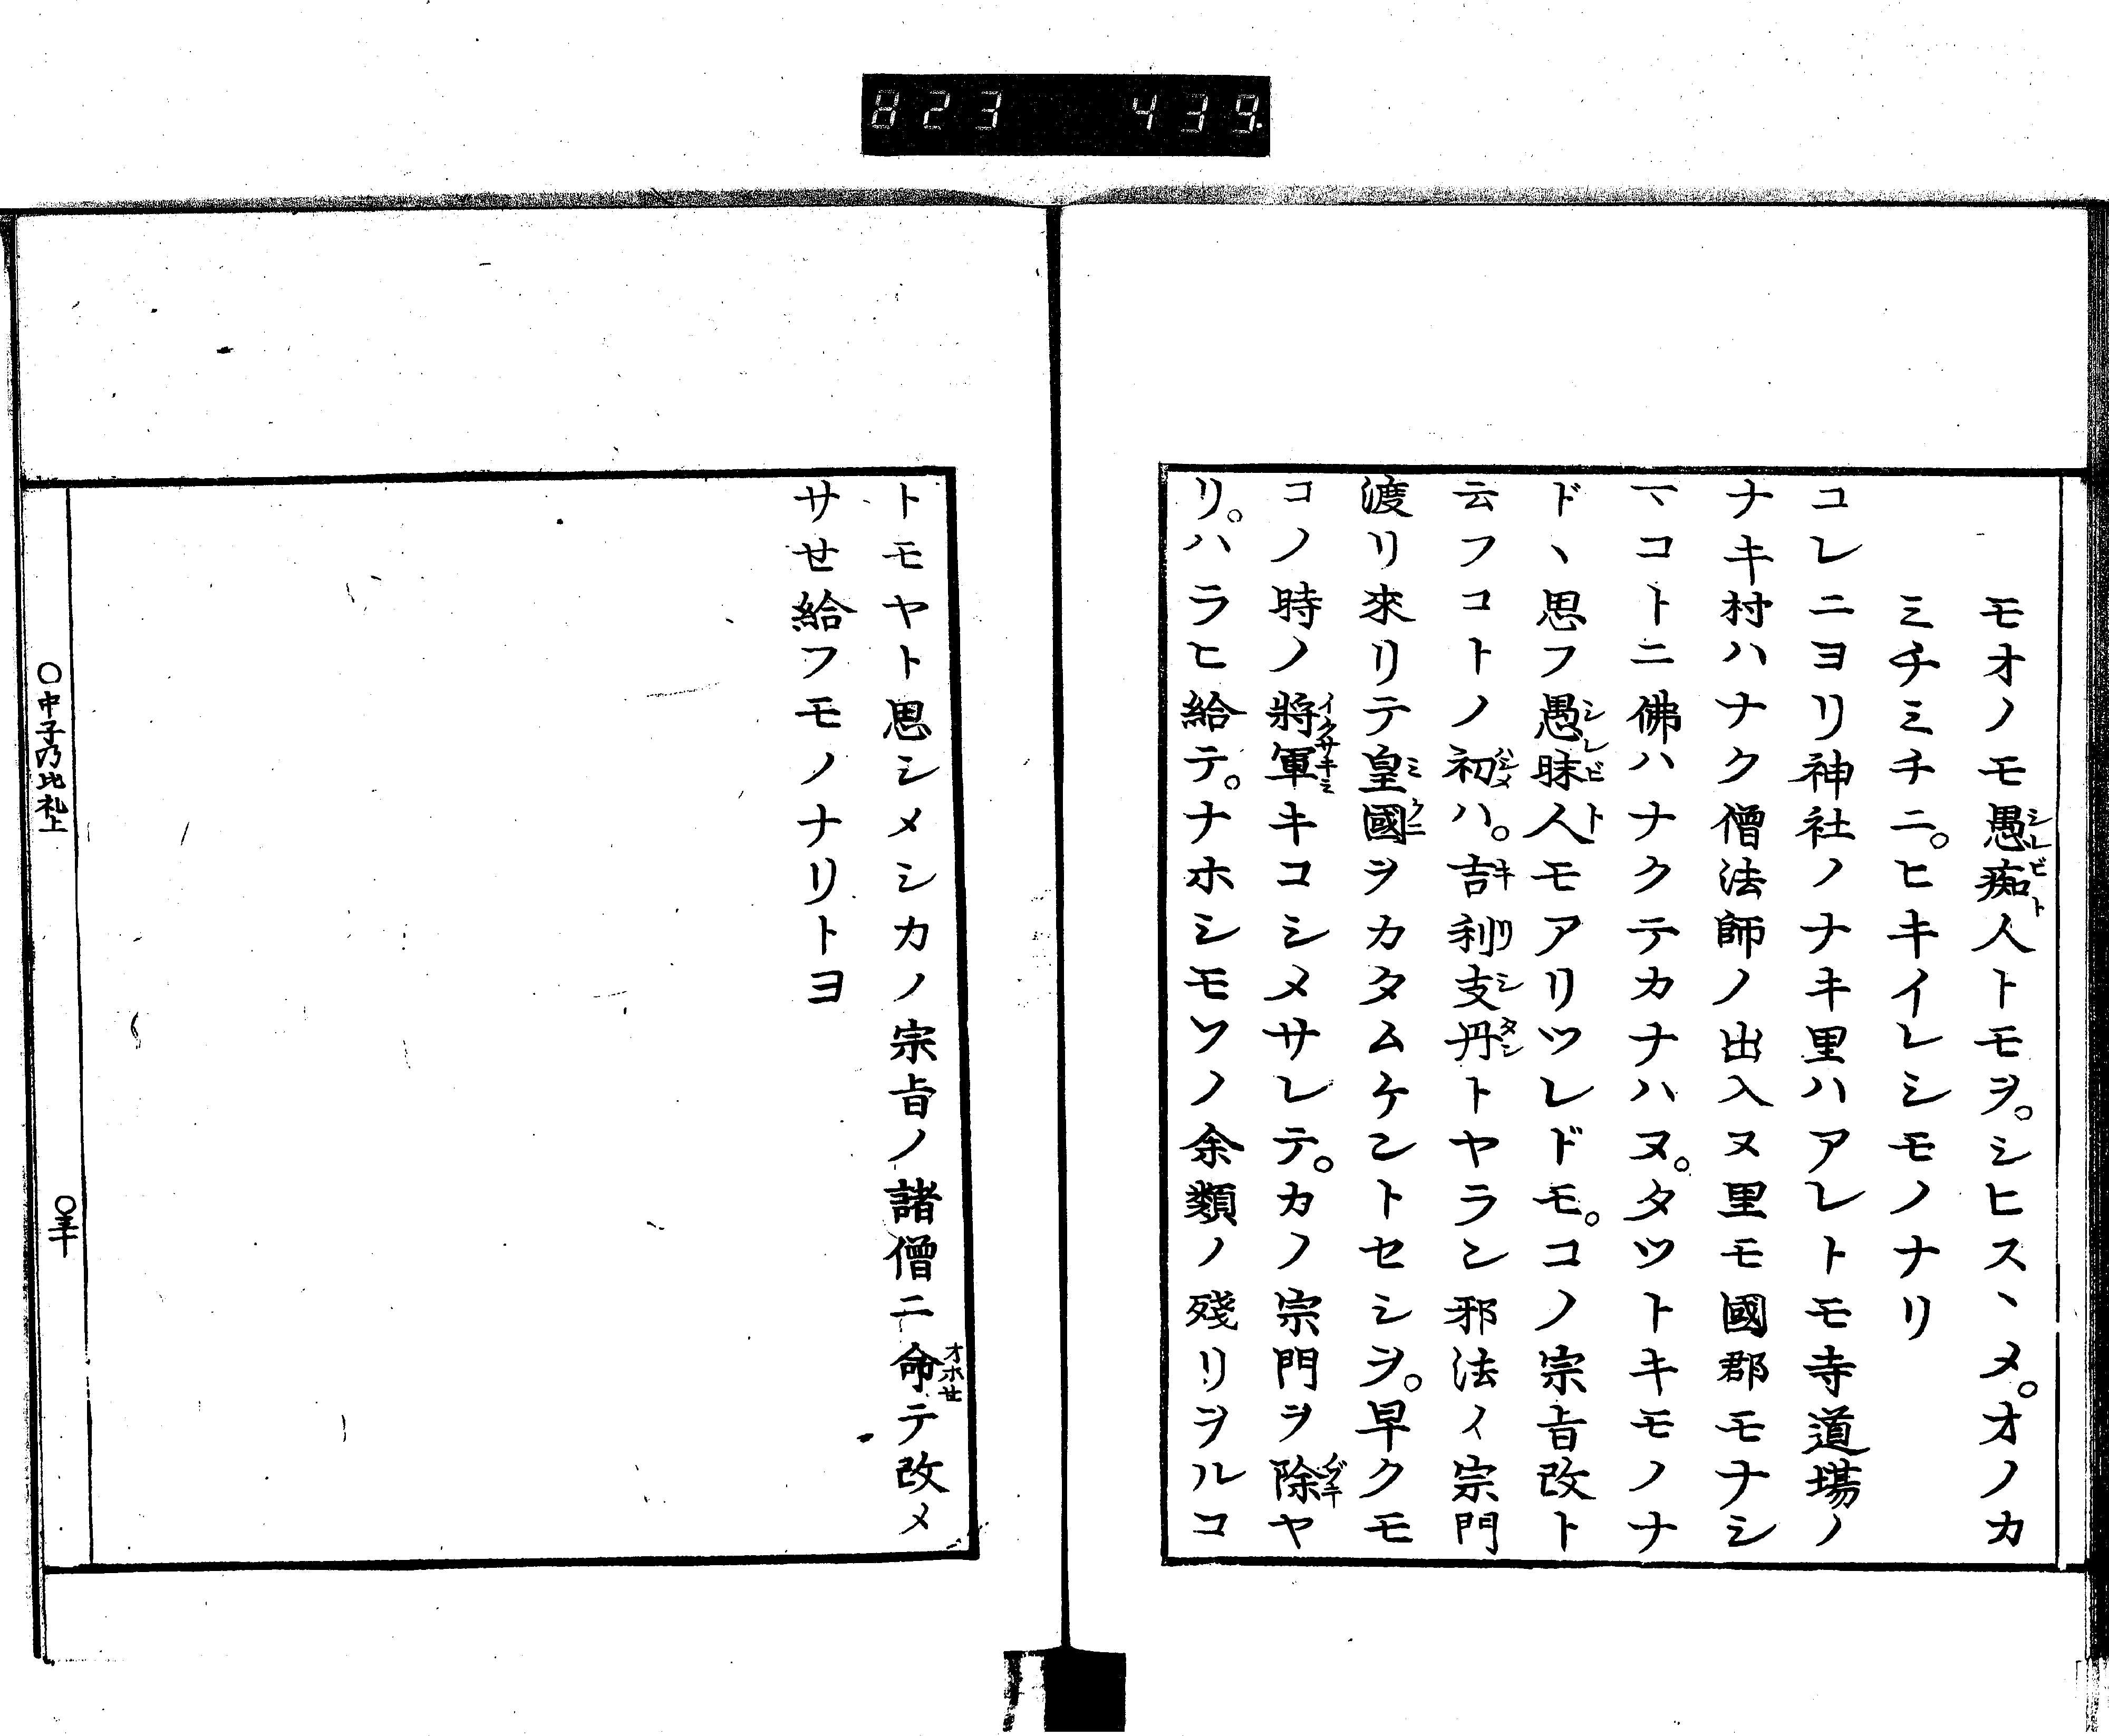 823 439
モオノモ愚痴人トモヲ。シヒスヽメ。オノカ
ミチミチニ。ヒキイレシモノナリ
コレニヨリ神社ノナキ里ハアレトモ寺道場ノ
ナキ村ハナク僧法師ノ出入ヌ里モ國郡モナシ
マコトニ佛ハナクテカナハヌ。タツトキモノナ
ドヽ思フ愚昧人モアリツレドモ。コノ宗旨改ト
云フコトノ初ハ。吉利支丹トヤラン邪法ノ宗門
渡リ來リテ皇國ヲカタムケントセシヲ。早クモ
コノ時ノ將軍キコシメサレテ。カノ宗門ヲ除ヤ
リ。ハラヒ給テ。ナホシモソノ余類ノ殘リヲルコ
トモヤト思シメシカノ宗旨ノ諸僧ニ命テ改メ
サせ給フモノナリトヨ
〇中子乃比礼上